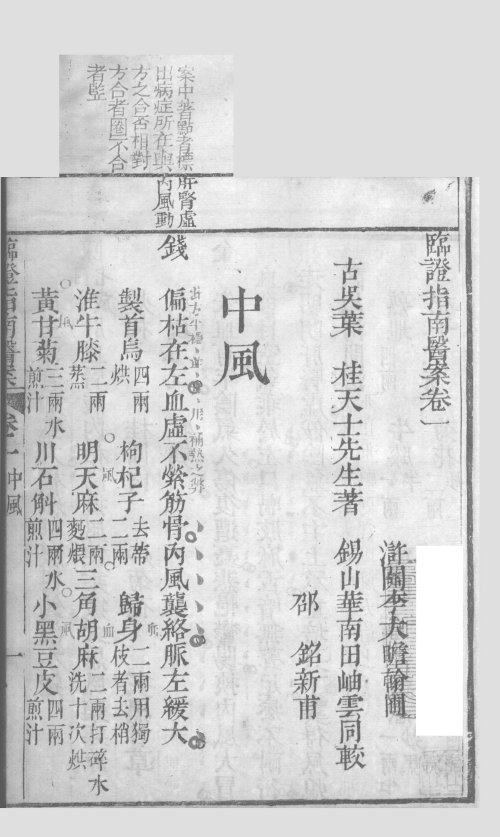 臨證指南醫案卷一
滸關李大瞻翰圃
古吳葉 桂天士先生著 錫山華南田岫雲同較
邵 銘新甫
中風
錢 偏枯在左血虛不縈筋骨內風襲絡脈左緩大
肝腎虛
內風動
製首烏四兩烘 枸杞子去蒂二兩 歸身二兩用獨枝者去梢
淮牛膝二兩蒸 明天麻二兩麪煨 三角胡麻二兩打碎水洗十次烘
黃甘菊三兩水煎汁 川石斛四兩水煎汁 小黑豆皮四兩煎汁
臨證指南醫案 卷一 中風 一
案中著點者標
出病症所在與
方之合否相對
方合者圈不合
者豎